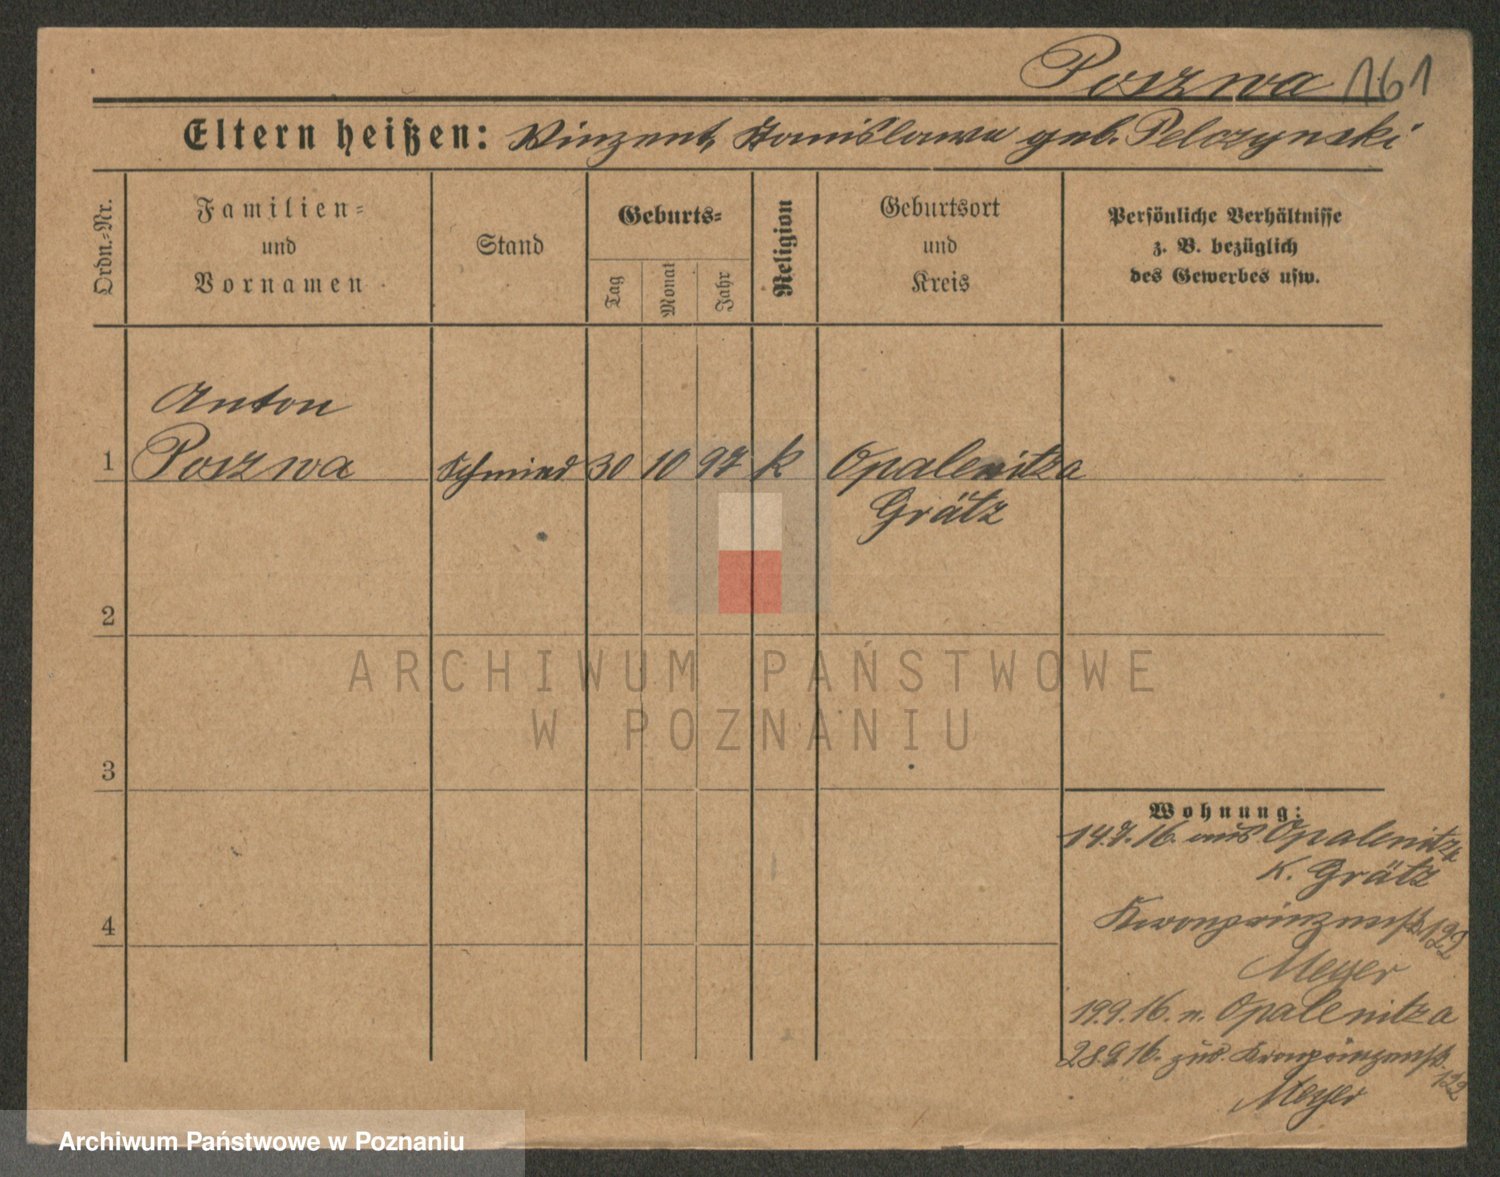 Poszwa 161
Eltern heißen: Vinzent, Stanislawa geb. Pelczynski
Ordn.-Nr.
Familien-
und
Vornamen
Stand
Geburts-
Tag
Monat
Jahr
Religion
Geburtsort
und
Kreis
Persönliche Verhältnisse
z. B. bezüglich
des Gewerbes usw.
Anton
1 Poszwa Schmied 30 10 97 k Opalenitza
Grätz
2
ARCHIWUM PAŃSTWOWE
W POZNANIU
3
Wohnung:
14.7.16. aus Opalenitza
K. Grätz
4
Kronprinzenstr. 122
Meyer
19.9.16. n. Opalenitza
28.9.16. zur. Kronprinzenstr.
122
Meyer
Archiwum Państwowe w Poznaniu